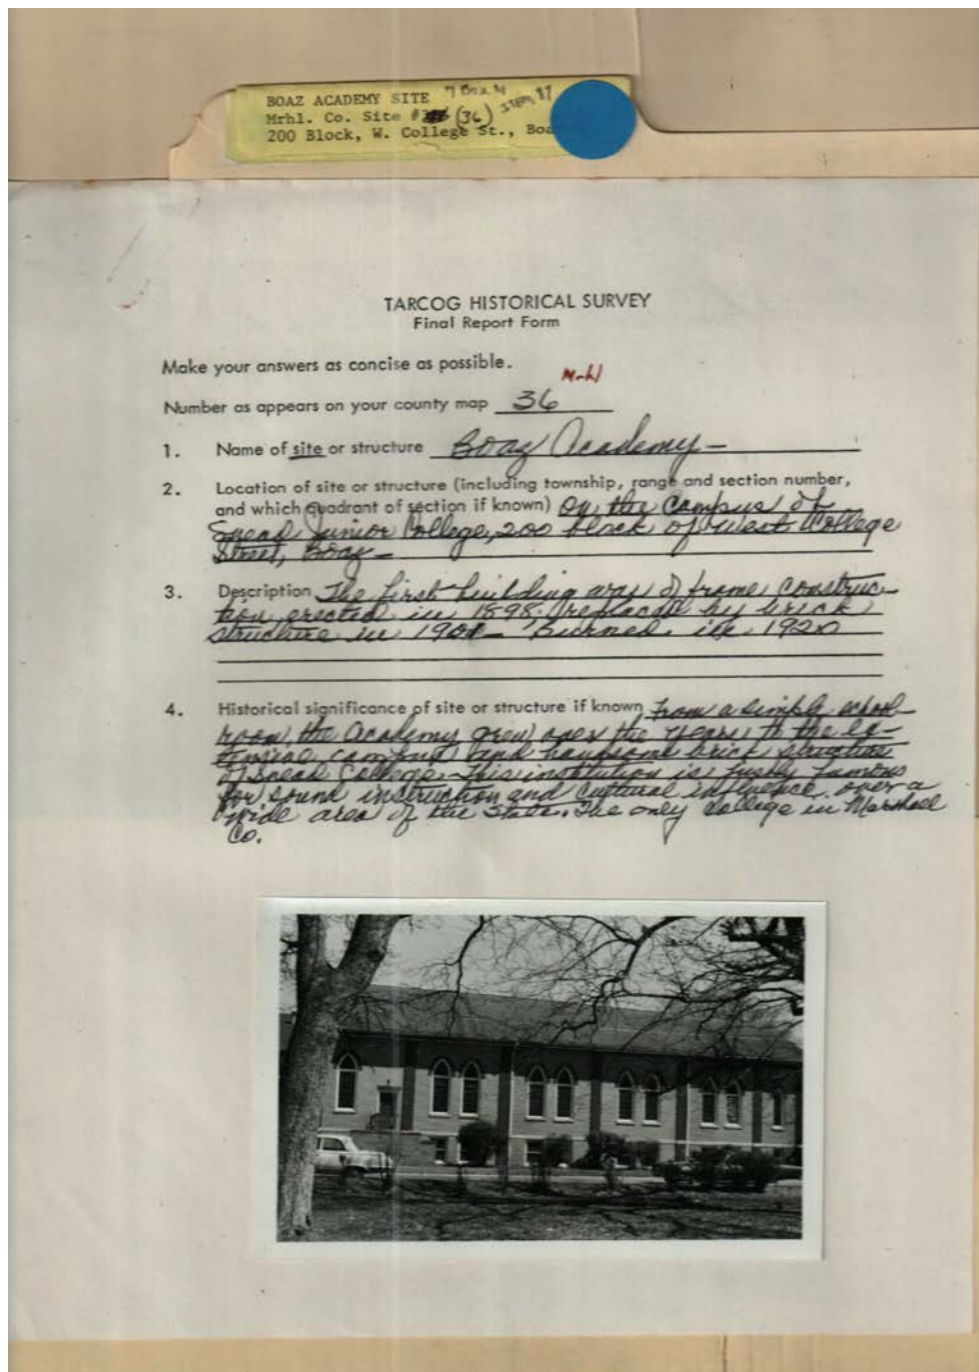 BOAZ ACADEMY SITE 7 Box 41
Mrhl. Co. Site # (36) Item 17
200 Block, W. College St., Boa
TARCOG HISTORICAL SURVEY
Final Report Form
Make your answers as concise as possible.
Mrhl
Number as appears on your county map 36
1. Name of site or structure Boaz Academy
2. Location of site or structure (including township, range and section number,
and which quadrant of section if known) On the campus of
Snead Junior College, 200 block of West College
Street, Boaz
3. Description The first building was of frame construc-
tion, erected in 1898, replaced by brick
structure in 1901 - Burned in 1920
4. Historical significance of site or structure if known From a simple school
room, the Academy grew over the years to the ex-
tensive campus and handsome brick structures
of Snead College. This institution is justly famous
for sound instruction and cultural influence over a
wide area of the State. The only college in Marshall
Co.